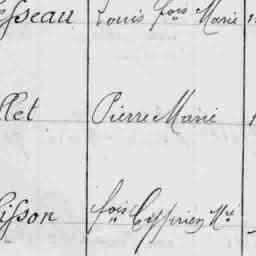 esseau Louis fçois Marie
llet Pierre Marie
isson fçois Cyprien Mie